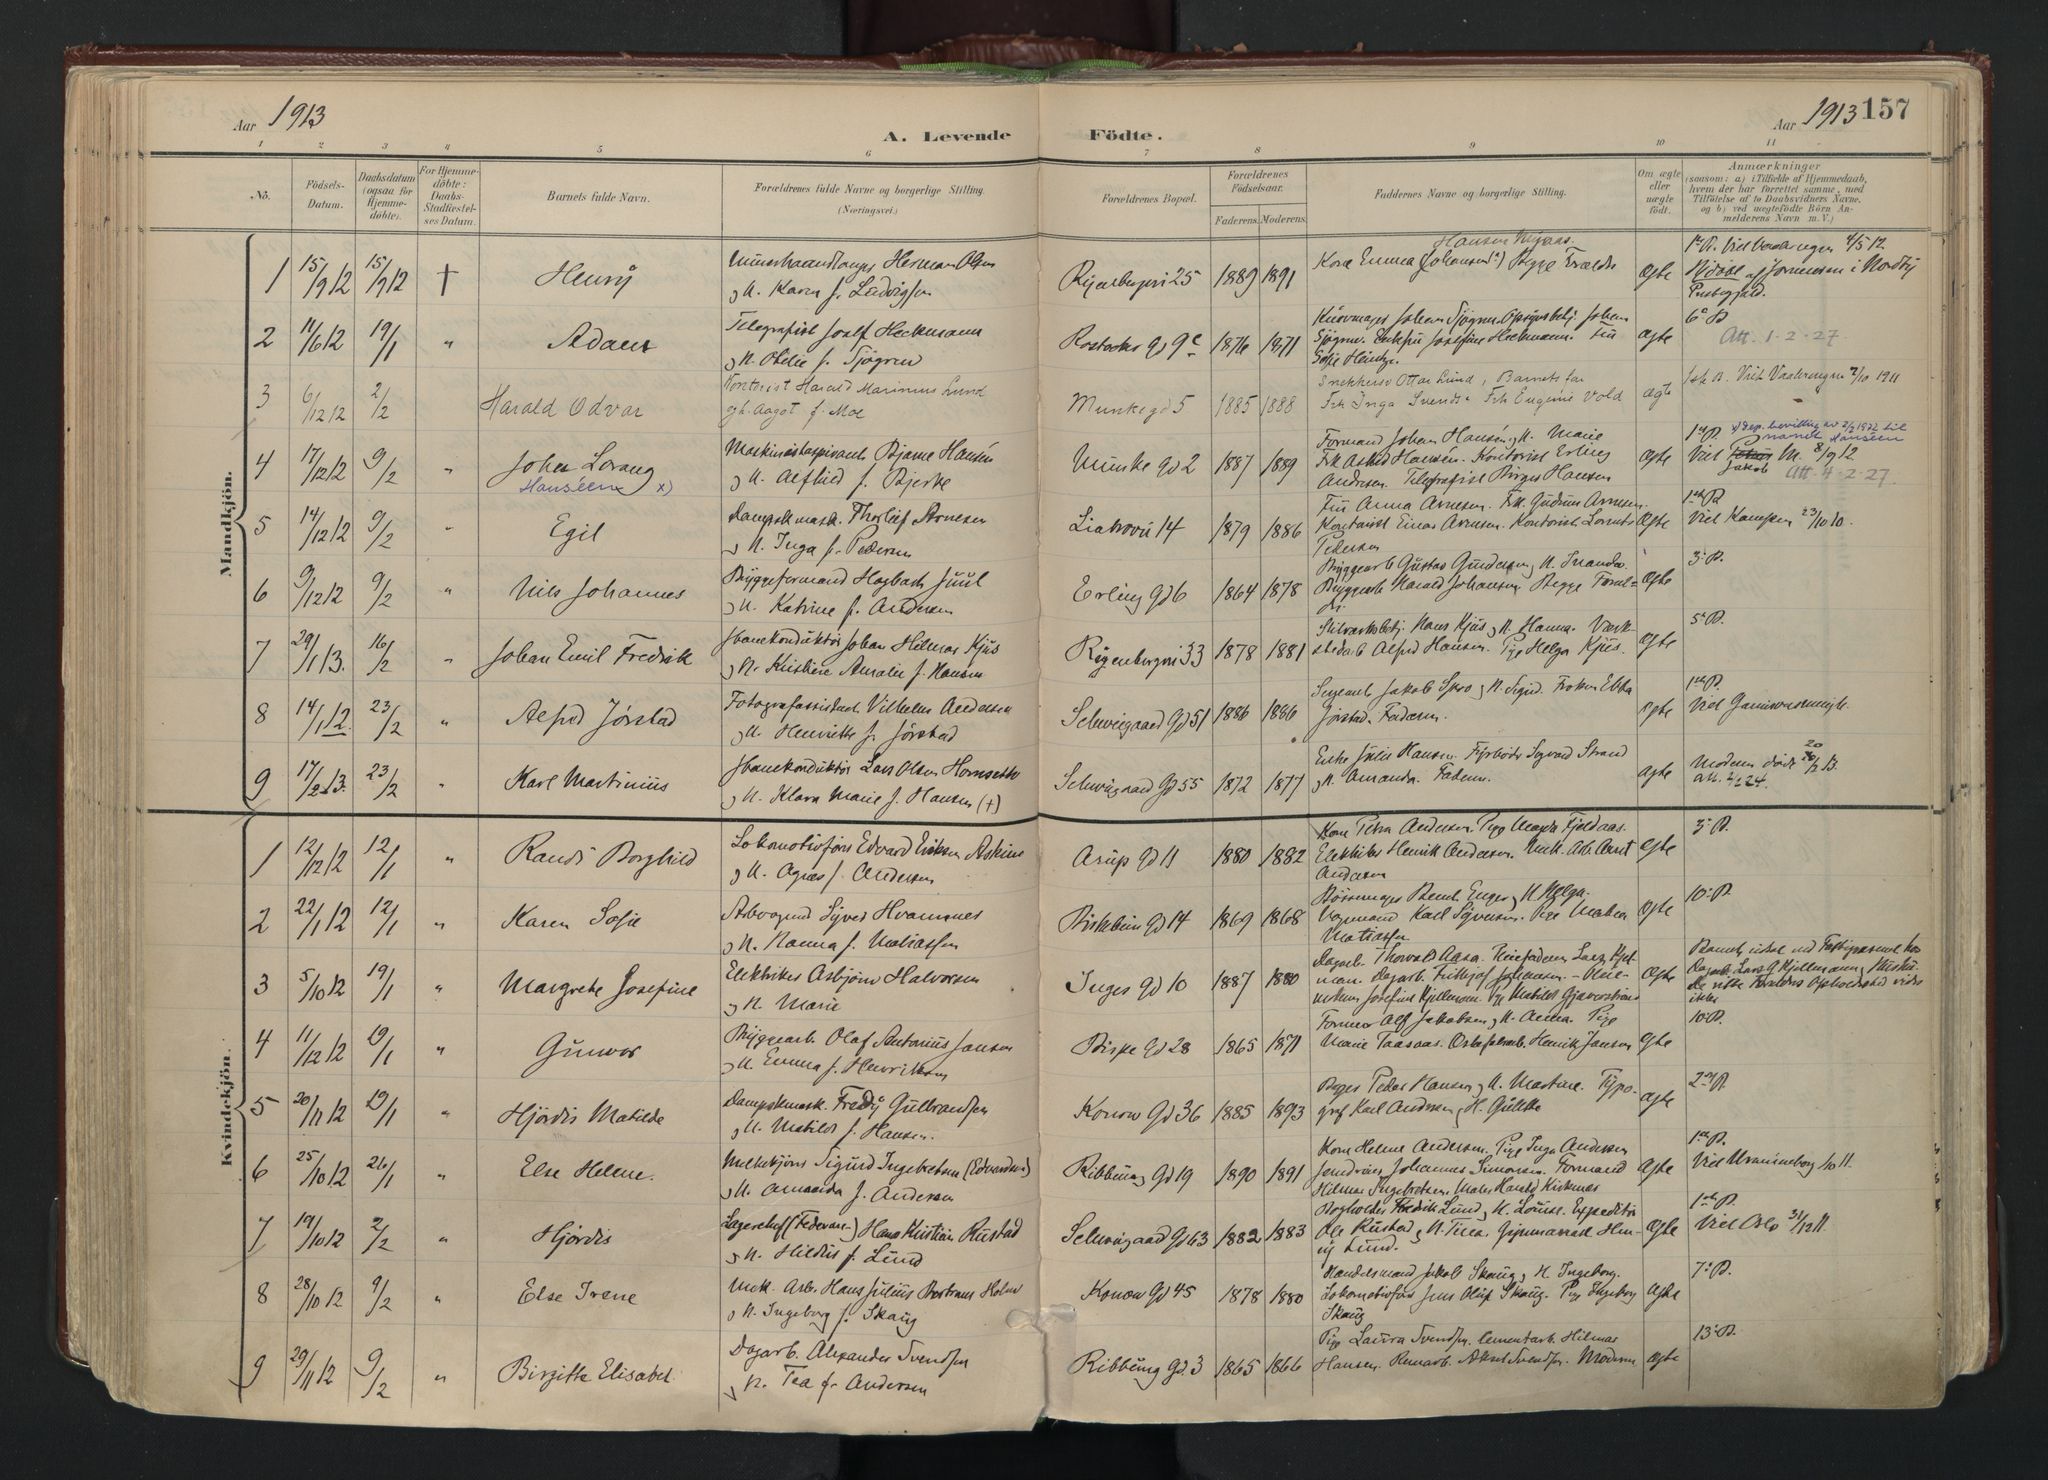 Aar 1913
A. Levende
Födte.
Aar 1913
157
1 2 3 4 5 6 7 8 9 10 11
No.
Födsels-
Datum.
Daabsdatum
(ogsaa for
Hjemme-
döbte).
For Hjemme-
döbte:
Daabs-
Stadfæstel-
ses Datum.
Barnets fulde Navn.
Forældrenes fulde Navne og borgerlige Stilling.
(Næringsvei.)
Forældrenes Bopæl.
Forældrenes
Födselsaar.
Faderens. Moderens.
Faddernes Navne og borgerlige Stilling.
Om ægte
eller
uægte
födt.
Anmærkninger
(saasom: a) i Tilfælde af Hjemmedaab,
hvem der har forrettet samme, med
Tilföielse af to Daabsvidners Navne,
og b) ved uægtefödte Börn An-
melderens Navn m. V.)
Mandkjön.
1 15/9 12 15/9 12 † Henry
Herman Olsen
og H. Karen f. Ludvigsen
Ryenbergvei 25 1889 1891
Kone Emma Johansen
ægte
4/5 12
2 11/6 12 19/1 " Adam
Telegrafist Josef Heckmann
og H. Otilie f. Sjögren
Rostocks gd 9c 1876 1871
Sjögren. Josefine Heckmann.
ægte
6 B
Att. 1-2-27
3 6/12 12 2/2 Harald Odvar
Kontorist Harald Marinius Lund
og h. Aagot f. Moe
Munkegd 5 1885 1888
Snekkersv Ottar Lund, Barnets far
Frk Inga Svends. Frk Eugenie Vold
ægte
Viet Vaalerengen 7/10 1911
4 17/12 12 9/2 " Johan Lorang
Hanséen x)
Maskinistaspirant Bjarne Hansén
og H. Alfhild f. Bjerke
Munke Gd 2 1887 1889
Formand Johan Hansén og H. Marie
Frk Astrid Hansén. Kontorist Erling
Andersen. Telegrafist Birger Hansen
ægte
1st B.
navnet Hanséen
Viet Jakob 8/9 12
Att. 4-2-27.
5 14/12 12 9/2 " Egil
Dampskmask. Thorleif Arnesen
og H. Inga f. Pedersen
Liakovei 14 1879 1886
Fru Anna Arnesen. Frk. Gudrun Arnesen.
Kontorist Einar Arnesen. Kontorist Lorentz
Pedersen
ægte
1st B.
Viet Kampen 23/10 10.
6 9/12 12 9/2 " Nils Johannes
Byggeformand Hagbarth Juul
og H. Katrine f. Andersen
Erling Gd 6 1864 1878
Byggearb Gustav Gundersen og H. Inanda.
Byggearb Harald Johansen. Begge Foræl-
dre
ægte
3. B.
7 29/1 13. 16/2 " Johan Emil Fredrik
Jbanekonduktör Johan Hilmar Kjus
og H. Kristine Amalie f. Hansen
Ryenbergvei 33 1878 1881
Hans Kjus og H. Hanna. Værk-
stedarb Alfred Hansen. Pige Helga Kjus.
ægte
5. B.
8 14/1 12. 23/2 " Alfred Jörstad
Fotografassistent Vilhelm Andersen
og H. Henriette f. Jörstad
Schweigaard Gd 51 1886 1886
Jakob Spro og H. Sigrid. Fröken Ebba
Jörstad. Faderen.
ægte
1st B.
Viet Garnisonsmenigh.
9 17/2 13. 23/2 " Karl Martinius
Jbanekonduktör Lars Olsen Hornsette
og H. Klara Marie f. Hansen (+)
Schweigaard Gd 55 1872 1877
Enke Julie Hansen. Fyrböter Sigvard Strand
og H. Amanda. Faderen.
ægte
Moderen död 20/2 13.
Att. 2/2 24.
Kvindekjön.
1 12/12 12 12/1 " Randi Borghild
Lokomotivförs Edvard Eriksen Askim
og H. Agnes f. Andersen
Arup Gd 11 1880 1882
Kone Petra Andersen. Pige Magda Fjeldaas.
Elektriker Henrik Andersen. Mek. Arb. Anst
Andersen
ægte
3. B.
2 22/1 12 12/1 " Karen Sofie
Syver Hvamsnes
og H. Hanna f. Matiassen
Biskleiv Gd 14 1869 1868
Bössemager Bernt Enger og H. Helga.
Vognmand Karl Syversen. Pige Matea
Matiassen
ægte
10. B.
3 5/10 12 19/1 " Margrete Josefine
Elektriker Asbjörn Halvorsen
og H. Marie
Inges Gd 10 1887 1880
Dagarb. Thorvald Aasa. Lars Kjell-
man. Dagarb. Fritjof Johansen.
Josefine Kjellman. Pige Matilde
ægte
Dagarb. Lars G Kjellmann
ikke
4 11/12 12 19/1 " Gunvor
Byggearb. Olaf Antonius Jansen
og H. Emma f. Henriksen
Bispe Gd 28 1865 1871
Former Alf Jakobsen og H. Anna. Pige
Marie Taasaas. Henrik Jansen
ægte
10. B.
5 20/11 12 19/1 " Hjördis Matilde
Dampskmask. Fredy Gulbrandsen
og H. Matilde f. Hansen.
Konow Gd 36 1885 1893
Bager Peder Hansen og H. Martine. Typo-
graf Karl Andersen og H. Gultte
ægte
2. B.
6 25/10 12 26/1 " Else Helene.
Melkekjörer Sigurd Ingebretsen (Edvardsen)
og H. Amanda f. Andersen
Ribbung Gd 19 1890 1891
Kone Helene Andersen. Pige Inga Andersen
Johannes Simonsen. Formand
Hilmar Ingebretsen. Maler Harald Kirkenær
ægte
1st B.
Viet Uranienborg 10 11.
7 19/10 12 2/2 " Hjördis
Lagerchef (Federvar-) Hans Kristian Rustad
og H. Hildur f. Lund
Schweigaard Gd 63 1882 1883
Bogholder Fredrik Lund og H. Louise. Expeditör
Ole Rustad og H. Tina. Gymnasiast Hen-
ry Lund.
ægte
1st B.
Viet Oslo 31/12 11.
8 28/10 12 9/2 " Else Irene
Mek. Arb. Hans Julius Bertrans Holm
og H. Ingeborg f. Skaug
Konow Gd 45 1878 1880
Handelsmand Jakob Skaug og H. Ingeborg.
Lokomotivförs Jens Oluf Skaug. Pige Ingeborg
Skaug
ægte
7. B.
9 29/11 12 9/2 " Birgitte Elisabet.
Dagarb. Alexander Svendsen
og H. Tea f. Andersen
Ribbung Gd. 3 1865 1866
Pige Laura Svendsen. Cementarb. Hilmar
Hansen. Aksel Svendsen. Moderen
ægte
13. B.